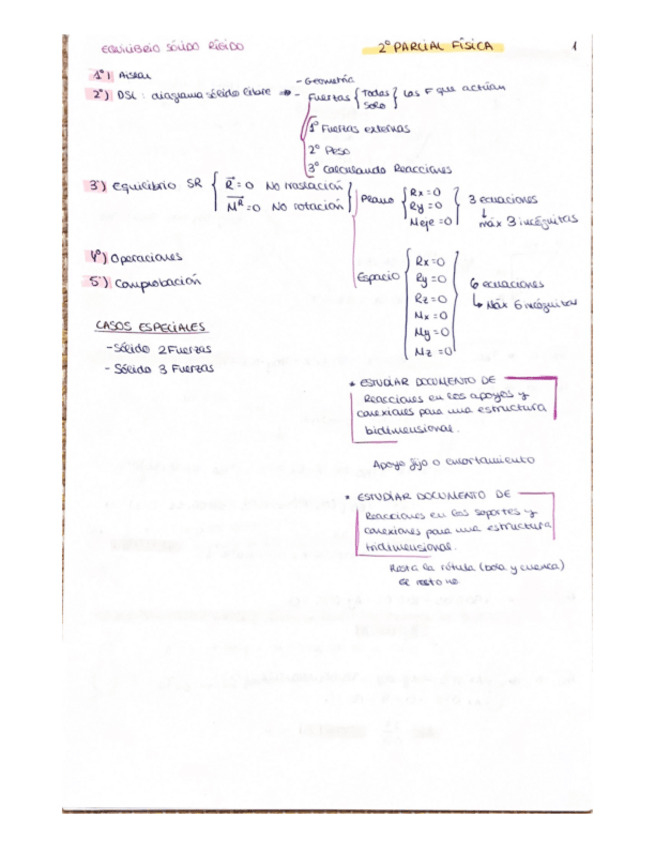 EQUILIBRIO SÓLIDO RÍGIDO
2º PARCIAL FÍSICA
1
1º) Aislar
2º) DSL: diagrama sólido libre → - Geometría
- Fuerzas { Todas Solo } las F que actúan
1º Fuerzas externas
2º Peso
3º Calculando Reacciones
3º) Equilibrio SR { R = 0 No traslación
M^R = 0 No rotación }
Plano { Rx = 0
Ry = 0
Meje = 0 }
3 ecuaciones
↓
máx 3 incógnitas
4º) Operaciones
5º) Comprobación
Espacio { Rx = 0
Ry = 0
Rz = 0
Mx = 0
My = 0
Mz = 0 }
6 ecuaciones
↳ Máx 6 incógnitas
CASOS ESPECIALES
- Sólido 2 Fuerzas
- Sólido 3 Fuerzas
* ESTUDIAR DOCUMENTO DE
Reacciones en los apoyos y
conexiones para una estructura
bidimensional.
Apoyo fijo o empotramiento
* ESTUDIAR DOCUMENTO DE
Reacciones en los soportes y
conexiones para una estructura
tridimensional.
la rótula (bola y cuenca)
resto no